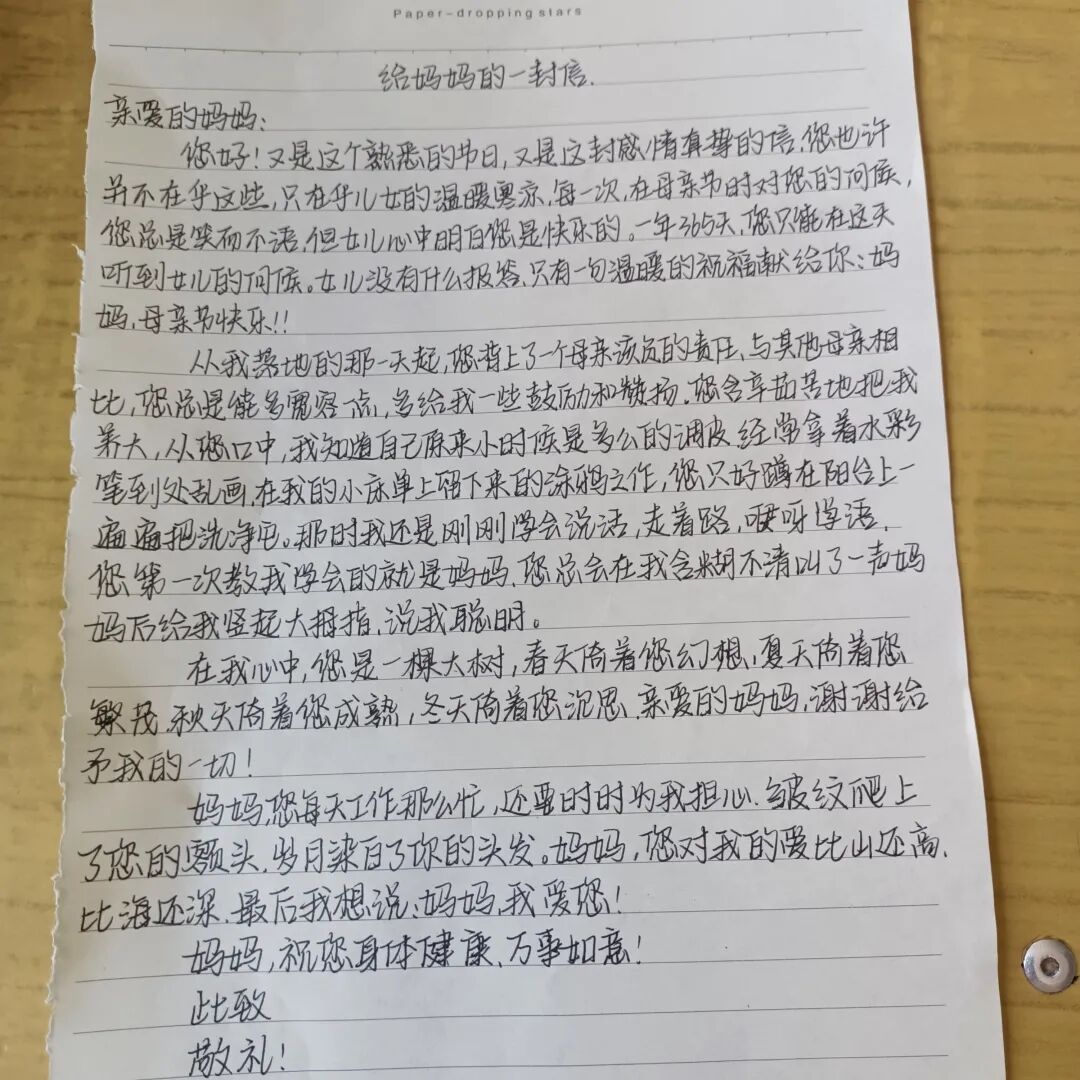 Paper-dropping stars
给妈妈的一封信.
亲爱的妈妈:
您好!又是这个熟悉的节日,又是这封感情真挚的信.您也许
并不在乎这些,只在乎儿女的温暖寒凉,每一次,在母亲节时对您的问候,
您总是笑而不语.但女儿心中明白您是快乐的。一年365天,您只能在这天
听到女儿的问候。女儿没有什么报答.只有一句温暖的祝福献给你:妈
妈,母亲节快乐!!
从我落地的那一天起,您背上了一个母亲该负的责任,与其他母亲相
比,您总是能多宽容一点,多给我一些鼓励和赞扬.您含辛茹苦地把我
养大,从您口中,我知道自己原来小时候是多么的调皮.经常拿着水彩
笔到处乱画.在我的小床单上留下来的涂鸦之作,您只好蹲在阳台上一
遍遍把洗净它。那时我还是刚刚学会说话,走着路,咿呀学语.
您第一次教我学会的就是妈妈.您总会在我含糊不清叫了一声妈
妈后给我竖起大拇指.说我聪明。
在我心中,您是一棵大树,春天倚着您幻想,夏天倚着您
繁茂.秋天倚着您成熟,冬天倚着您沉思.亲爱的妈妈,谢谢给
予我的一切!
妈妈,您每天工作那么忙,还要时时为我担心.皱纹爬上
了您的额头.岁月染白了你的头发。妈妈,您对我的爱比山还高.
比海还深.最后我想说:妈妈,我爱您!
妈妈,祝您身体健康.万事如意!
此致
敬礼!